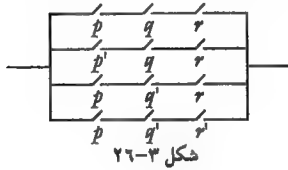 p q r
p' q r
p q' r
p q' r'
شکل ۳-۲۶